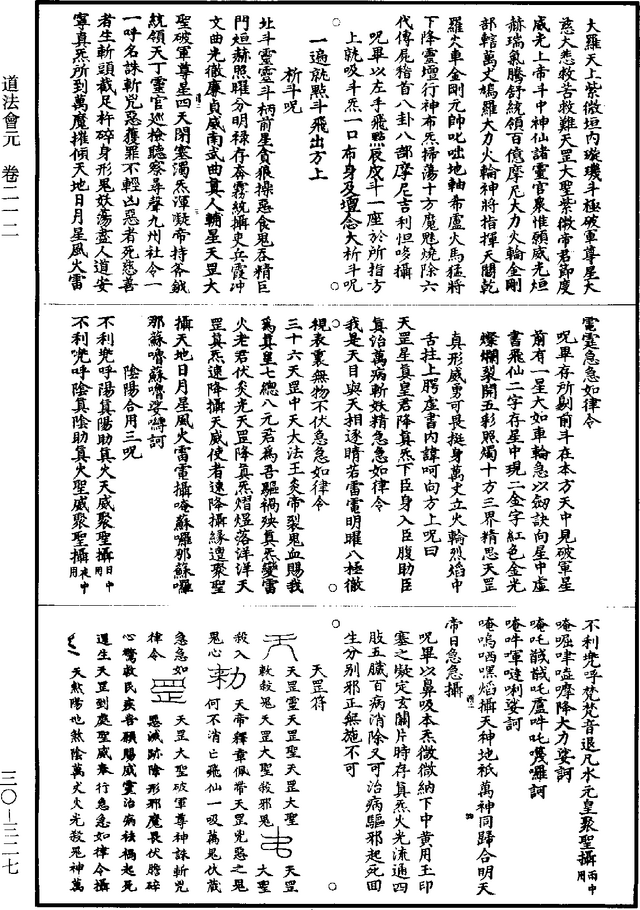 道法會元　卷二一二
大羅天上紫微垣內璇璣斗極破軍尊星大
慈大悲救苦救難天罡大聖紫微帝君節度
威光上帝斗中神仙諸靈官眾惟願威光烜
赫瑞氣騰舒統領百億摩尼大力火輪金剛
部轄萬丈鳩羅大力火輪神將指揮天關乾
羅火車金剛元帥叱咄地軸希盧火馬猛將
下降靈壇行神布炁掃蕩十方魔魅燒除六
代傳屍稽首八卦八部摩尼吉利怛哆攝
呪畢以左手飛熙辰戌斗一座於所指方
上就吸斗炁一口布身及壇念大祈斗呪
一遍就點斗飛出方上
祈斗呪
北斗靈靈斗柄前星貪狼操惡食鬼吞精巨
門烜赫照曜分明祿存奔霧統攝吏兵震冲
文曲光徹廉貞威南武曲真人輔星天罡大
聖破軍尊星四天閉塞濁炁渾凝帝持斧鉞
統領天丁靈官巡檢聽察尋聲九州社令一
一呼名誅斬兇惡獲罪不輕凶惡者死慈善
者生斬頭截足杵碎身形鬼妖蕩盡人道安
寧真炁所到萬魔摧傾天地日月星風火雷
電霆急急如律令
呪畢存所剔前斗在本方天中見破軍星
前有一星大如車輪急以劒訣向星中虛
書飛仙二字存星中現二金字紅色金光
燦爛裂開五彩照燭十方三界精思天罡
真形威勇可畏挺身萬丈立火輪烈焰中
舌拄上腭虛書內諱呵向方上呪曰
天罡星真皇君降真炁下臣身入臣腹助臣
真治萬病斬妖精急急如律令
我是天目與天相逐睛若雷電明曜八極徹
視表裏無物不伏急急如律令
三十六天罡中天大法王炎帝裂鬼血賜我
為真皇七總八元君為吾驅禍殃真炁變雷
火老君伏炎光天罡降真炁熠煜落洋洋天
罡真炁速降攝天威使者速降攝緣遭聚聖
攝天地日月星風火雷電攝唵蘇囉耶蘇囉
那蘇嚕蘇嚕娑嚩訶
陰陽合用三呪
不利兜呼陽真陽助真火天威聚聖攝日中用
不利兜呼陰真陰助真火聖威聚聖攝夜中用
不利兜呼梵梵音退凡水元皇聚聖攝雨中用
唵𡀔啤嗌摩降大力娑訶
唵吒戠戠吒盧吽吒㘕囉訶
唵吽㗲噠唎娑訶
唵嗚哂嘿焰攝天神地祇萬神同歸合明天
帝日急急攝
呪畢以鼻吸本炁微微納下中黃用玉印
塞之凝定玄關片時存真炁火光流通四
肢五臟百病消除又可治病驅邪起死回
生分別邪正無施不可
天罡符
天罡靈天罡聖天罡大聖　天罡
敕救鬼天罡大聖殺邪鬼　大聖
殺入　天帝釋章佩帶天罡兇惡之鬼
鬼心　何不消亡飛仙一吸萬鬼伏藏
急急如　天罡大聖破軍尊神誅斬兇
律令　惡滅跡除形邪魔畏伏膽碎
心驚救民疾苦願賜威靈治病祛禍起死
還生天罡到處聖威奉行急急如律令攝
天煞陽地煞陰萬丈火光殺鬼神萬
三〇－三二七